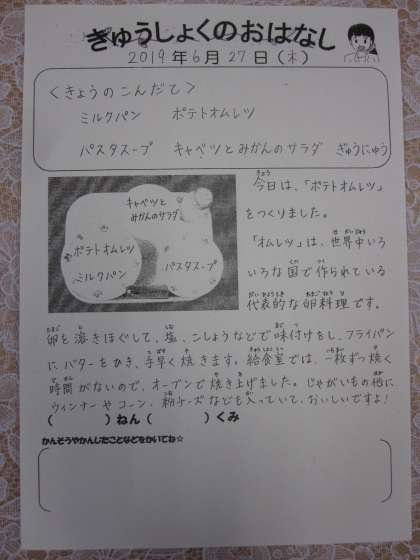 きゅうしょくのおはなし
2019年6月27日(木)
<きょうのこんだて>
ミルクパン ポテトオムレツ
パスタスープ キャベツとみかんのサラダ ぎゅうにゅう
キャベツと
みかんのサラダ
ポテトオムレツ
ミルクパン
パスタスープ
今日は、「ポテトオムレツ」
をつくりました。
「オムレツ」は、世界中いろ
いろな国で作られている
代表的な卵料理です。
卵を溶きほぐして、塩、こしょうなどで味付けをし、フライパン
に、バターをひき、手早く焼きます。給食室では、一枚ずつ焼く
時間がないので、オーブンで焼き上げました。じゃがいもの他に
ウィンナーやコーン、粉チーズなども入っていて、おいしいですよ!
( )ねん( )くみ
かんそうやかんじたことなどをかいてね☆